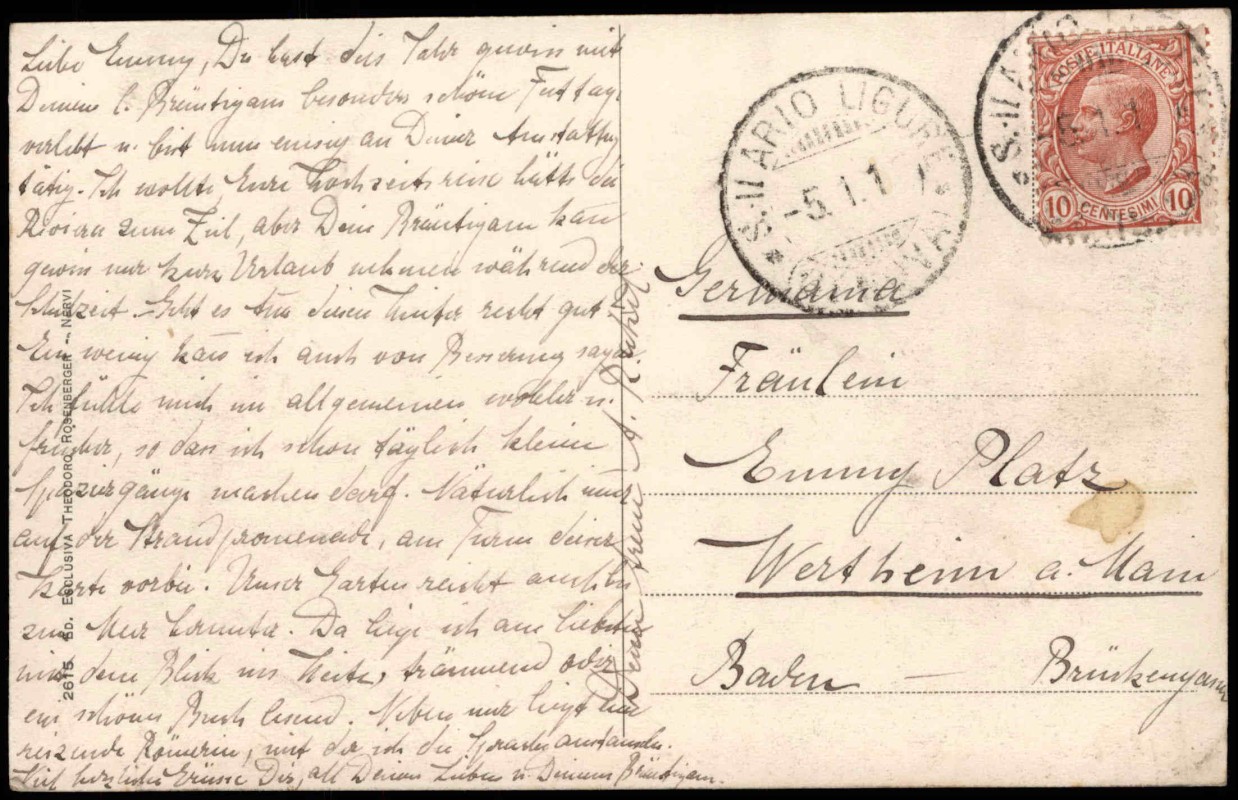 Liebe Emmy, Du hast dies Jahr gewiss mit
Deinem l. Bräutigam besonders schöne Festtage
verlebt u. bist nun emsig an Deiner Ausstattung
tätig. Ich wollte, Eure Hochzeitsreise hätte die
Riviera zum Ziel, aber Dein Bräutigam kan
gewiss nur kurz Urlaub nehmen während der
Schulzeit. Geht es diesen Winter recht gut
Ein wenig kan ich auch von Besserung sagen
Ich fühle mich im allgemeinen wohler u.
frischer, so dass ich schon täglich kleine
Spaziergänge machen darf. Natürlich nur
auf der Strandpromenade, am Turm dieser
Karte vorbei. Unser Garten reicht auch bis
zum Meer herunter. Da liege ich am liebsten
mit dem Blick ins Weite, träumend oder
ein schönes Buch lesend. Neben mir liegt eine
reizende Römerin, mit der ich die Sprachen austausche.
Viel herzliche Grüsse Dir, all Deinen Lieben u. Deinem Bräutigam.
Deine treue A.
2615 ED. ESCLUSIVA THEODORO ROSENBERGER - NERVI
S. ILARIO LIGURE
-5.1.1
POSTE ITALIANE
10 CENTESIMI 10
Germania
Fräulein
Emmy Platz
Wertheim a. Main
Baden — Brückengasse